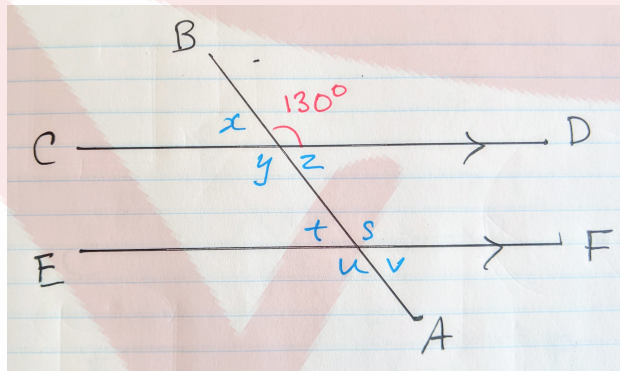 B
130°
x
C
D
y z
t s
E
F
u v
A